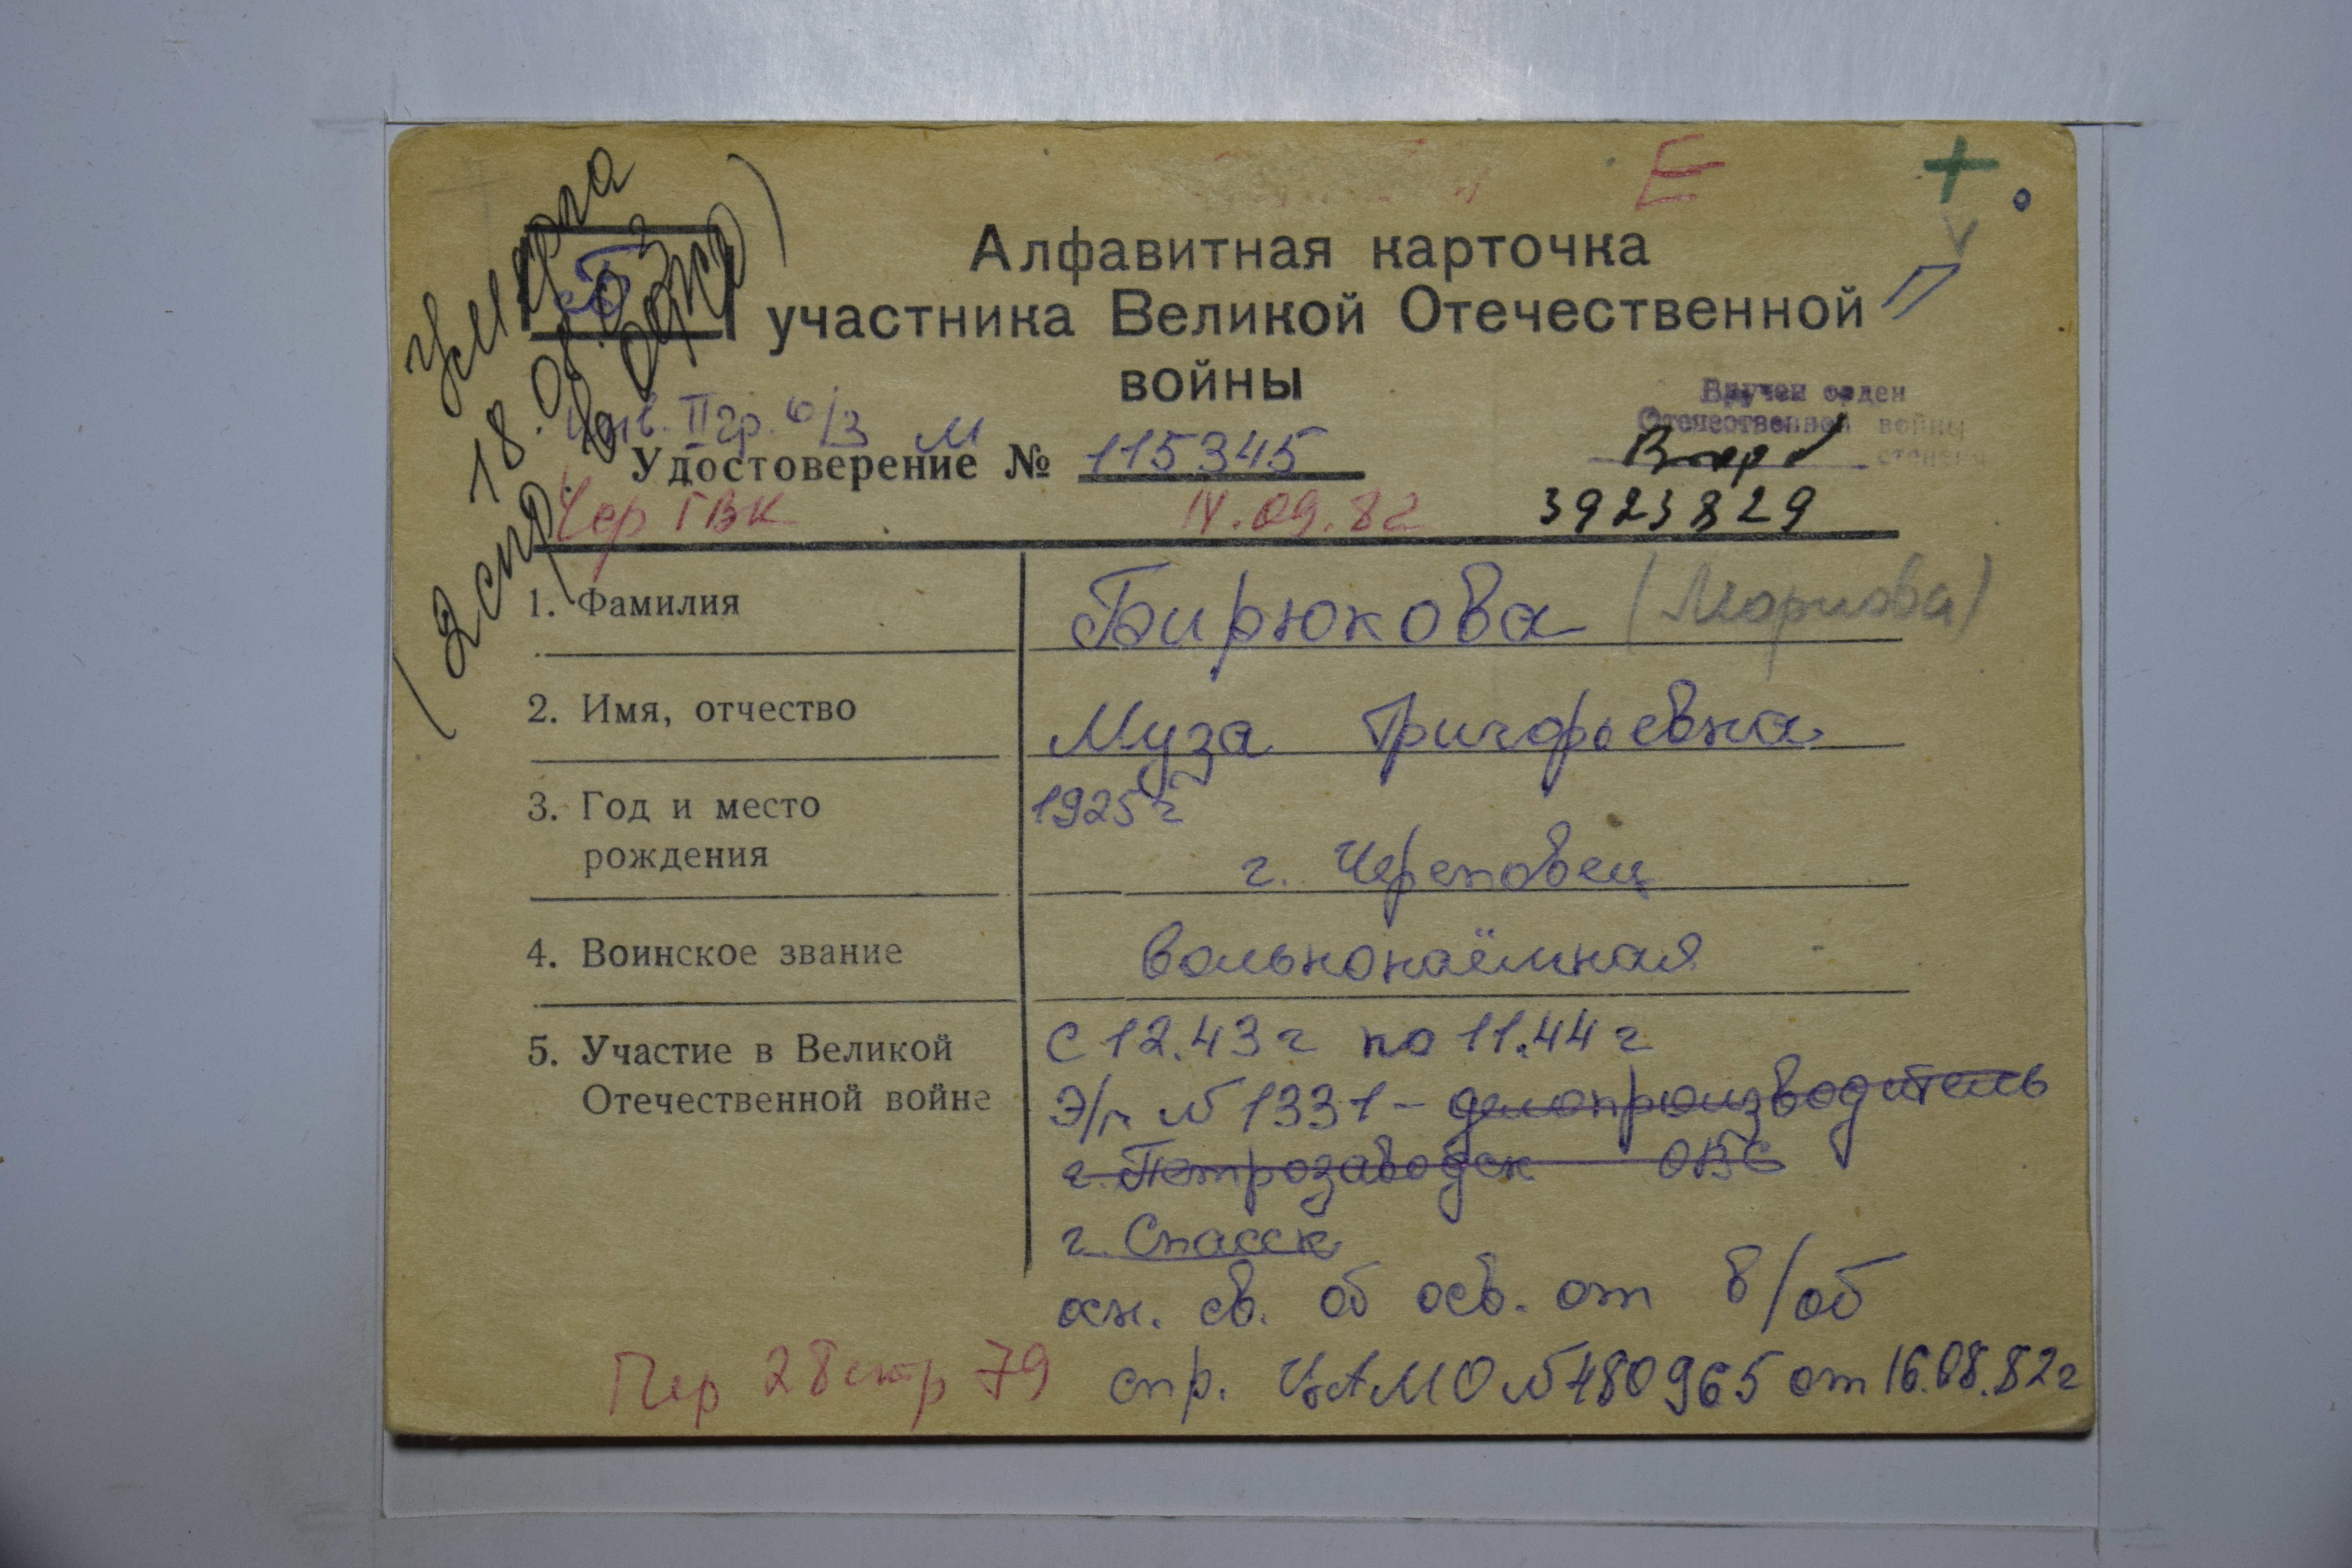 Умерла
18.01.03
(2 спр. в дар)
Е
+
Б
Алфавитная карточка
участника Великой Отечественной
войны
П
Вручен орден
Отечественной войны
степени
Инв. II гр. о/з
Удостоверение № М 115345
Чер ГВК
IV.09.82
3923829
1. Фамилия
Бирюкова
2. Имя, отчество
Муза Григорьевна
3. Год и место
рождения
1925 г
г. Череповец
4. Воинское звание
вольнонаёмная
5. Участие в Великой
Отечественной войне
с 12.43 г по 11.44 г
Э/г № 1331 - делопроизводитель
г. Петрозаводск ОВС
г. Спасск
осн. св. об осв. от в/об
Пер 28 стр 79
спр. ЦАМО № 480965 от 16.08.82 г